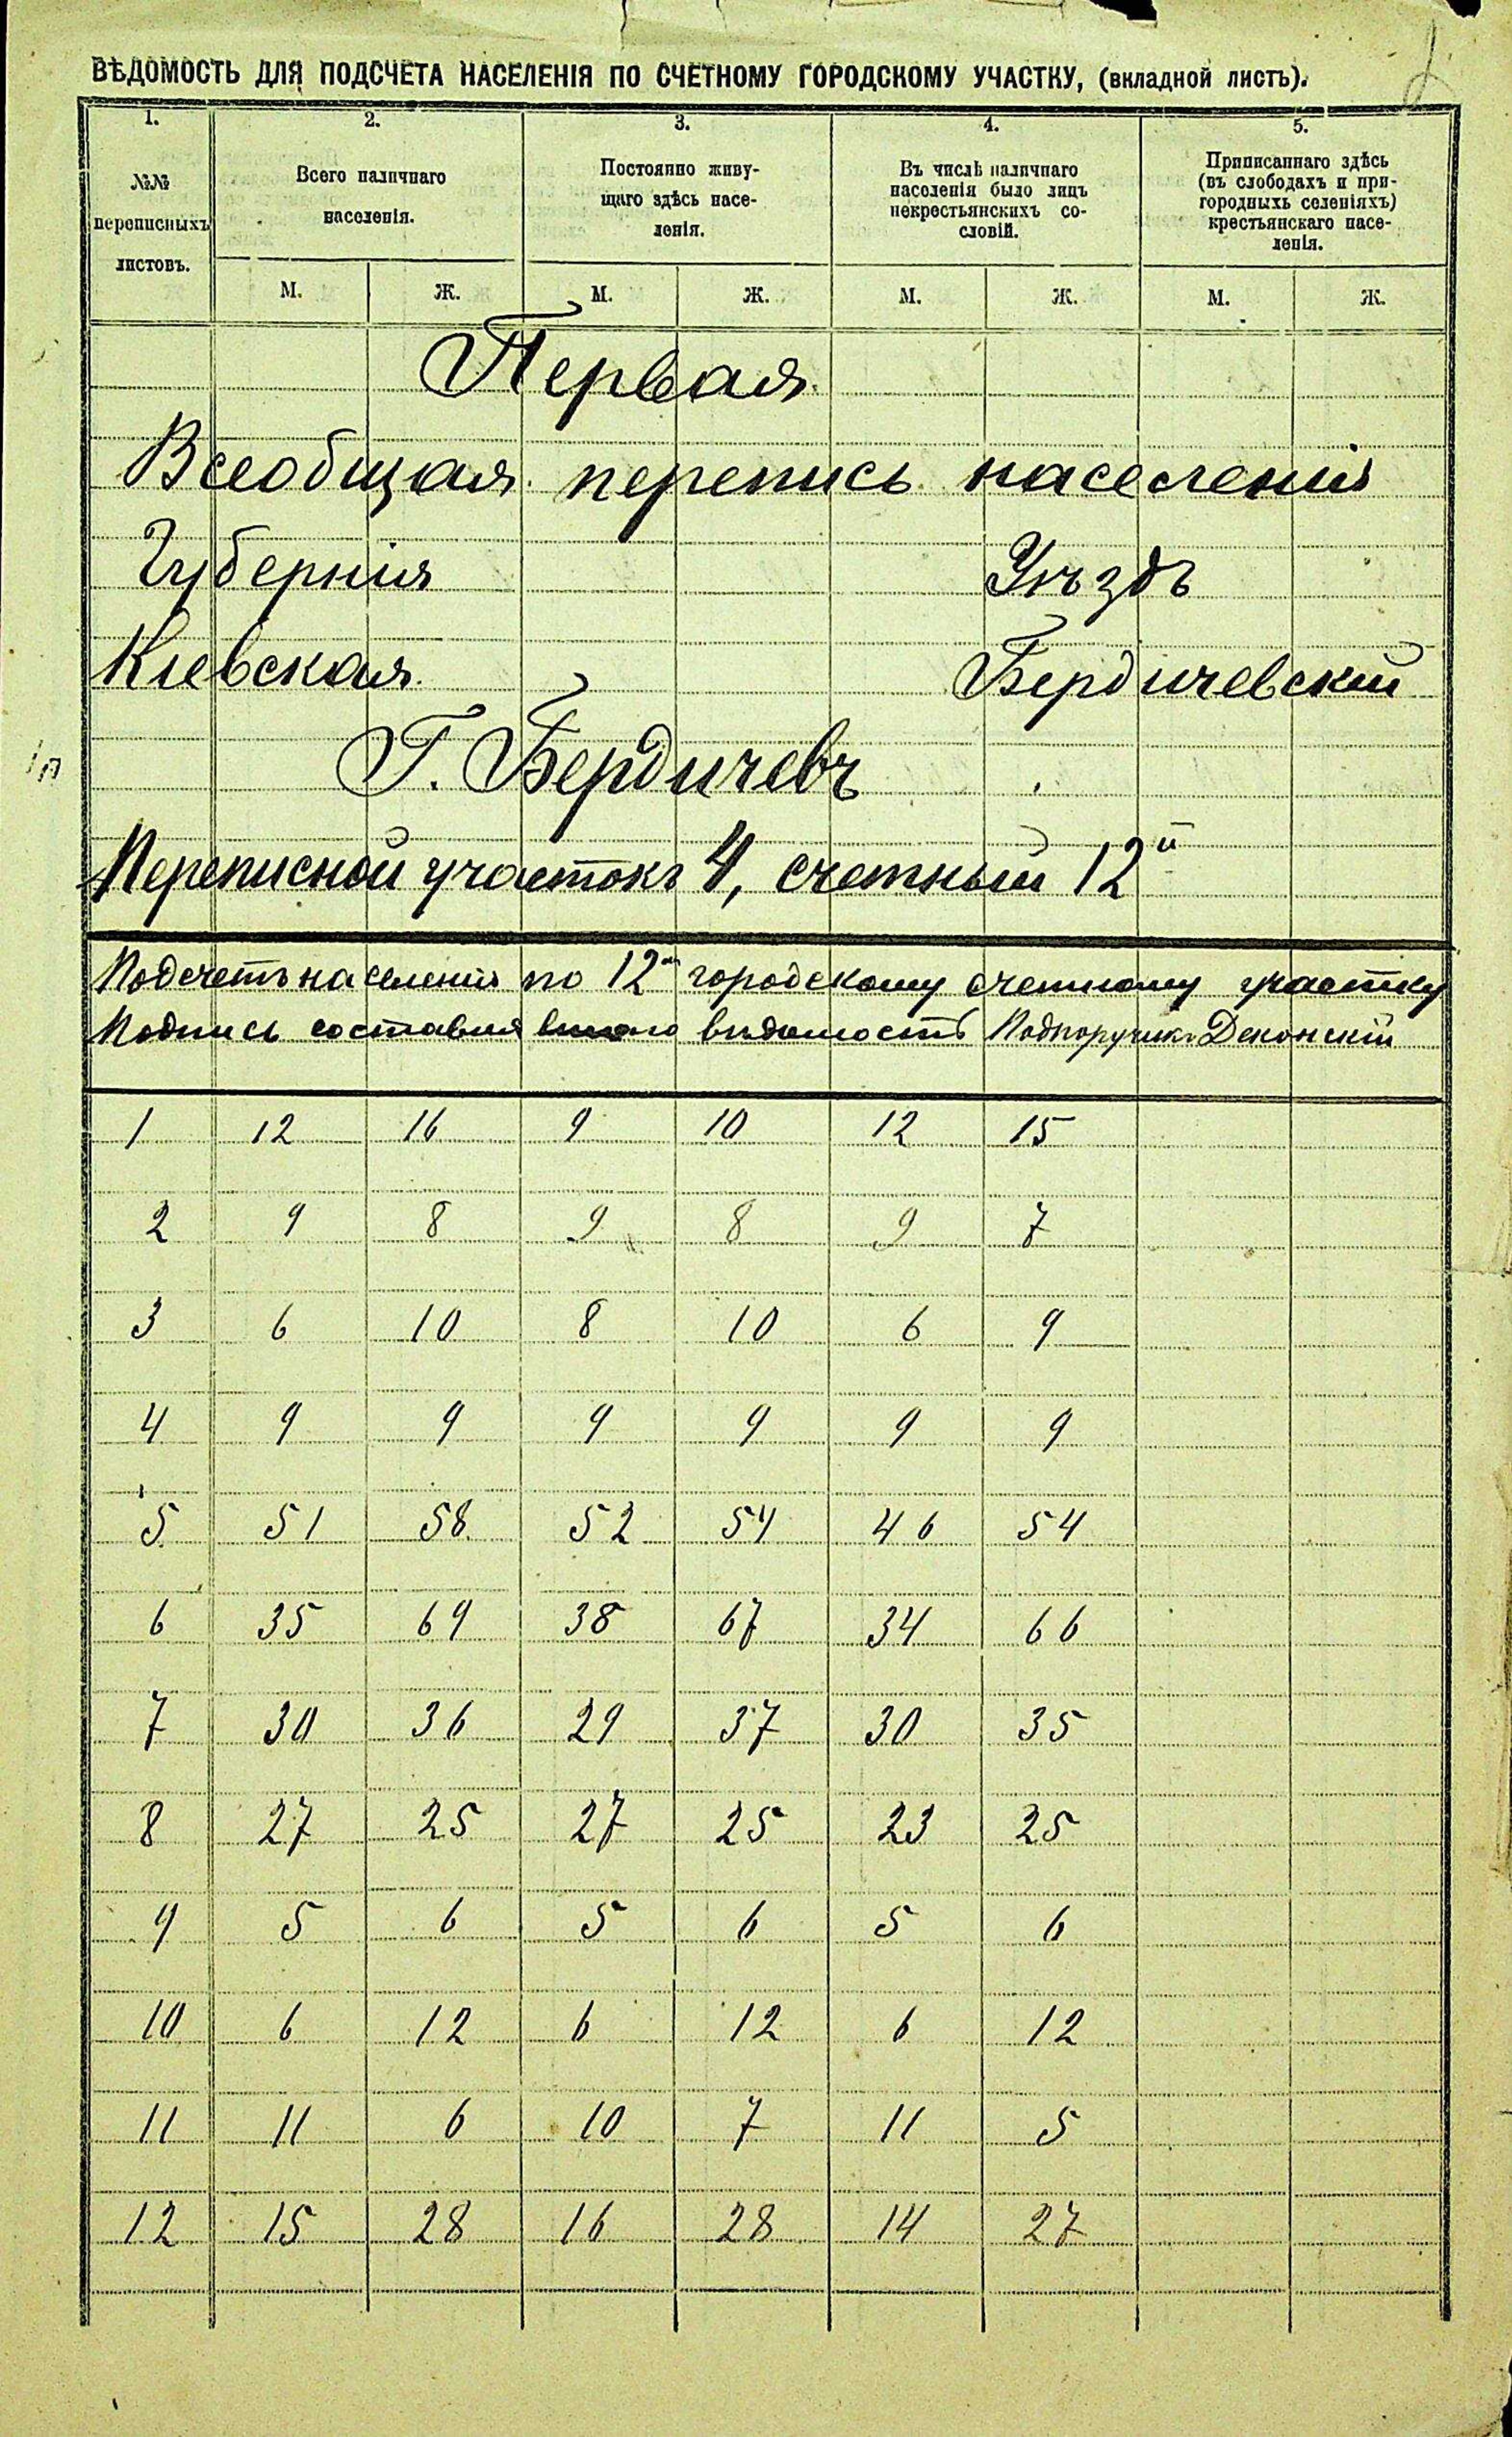 ВѢДОМОСТЬ ДЛЯ ПОДСЧЕТА НАСЕЛЕНІЯ ПО СЧЕТНОМУ ГОРОДСКОМУ УЧАСТКУ, (вкладной листъ).
1. 2. 3. 4. 5.
№№
переписныхъ
листовъ.
Всего наличнаго
населенія.
Постоянно живу-
щаго здѣсь насе-
ленія.
Въ числѣ наличнаго
населенія было лицъ
некрестьянскихъ со-
словій.
Приписаннаго здѣсь
(въ слободахъ и при-
городныхъ селеніяхъ)
крестьянскаго насе-
ленія.
М. Ж. М. Ж. М. Ж. М. Ж.
Первая
Всеобщая перепись населенія
Губернія Уѣздъ
Кіевская Бердичевскій
Г. Бердичевъ
Переписной участокъ 4, счетный 12й
Подсчетъ населенія по 12му городскому счетному участку
Подпись составлявшаго вѣдомость Подпоручикъ
1 12 16 9 10 12 15
2 9 8 9 8 9 7
3 6 10 8 10 6 9
4 9 9 9 9 9 9
5 51 58 52 54 46 54
6 35 69 38 67 34 66
7 30 36 29 37 30 35
8 27 25 27 25 23 25
9 5 6 5 6 5 6
10 6 12 6 12 6 12
11 11 6 10 7 11 5
12 15 28 16 28 14 27